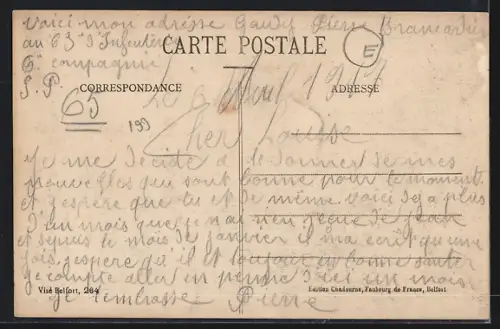 Voici mon adresse Gaudy Pierre Brancardier
au 63e d'Infanterie
CARTE POSTALE
E
6e compagnie
S. P.
CORRESPONDANCE
ADRESSE
65
Le Avril 1917
199
Cher Louise
Je me décide a te donner de mes
nouvelles qui sont bonne pour le moment
et j'espère que tu et de même voici deja plus
d'un mois que je n'ai rien reçue de Jean
et depuis le mois de janvier il m'a ecrit qu'une
fois j'espère qu'il et toujour en bonne santer
je compte aller en perme d'ici un mois
Je t'embrasse Pierre
Visé Belfort, 264
Bardon Chadourne, Faubourg de France, Belfort